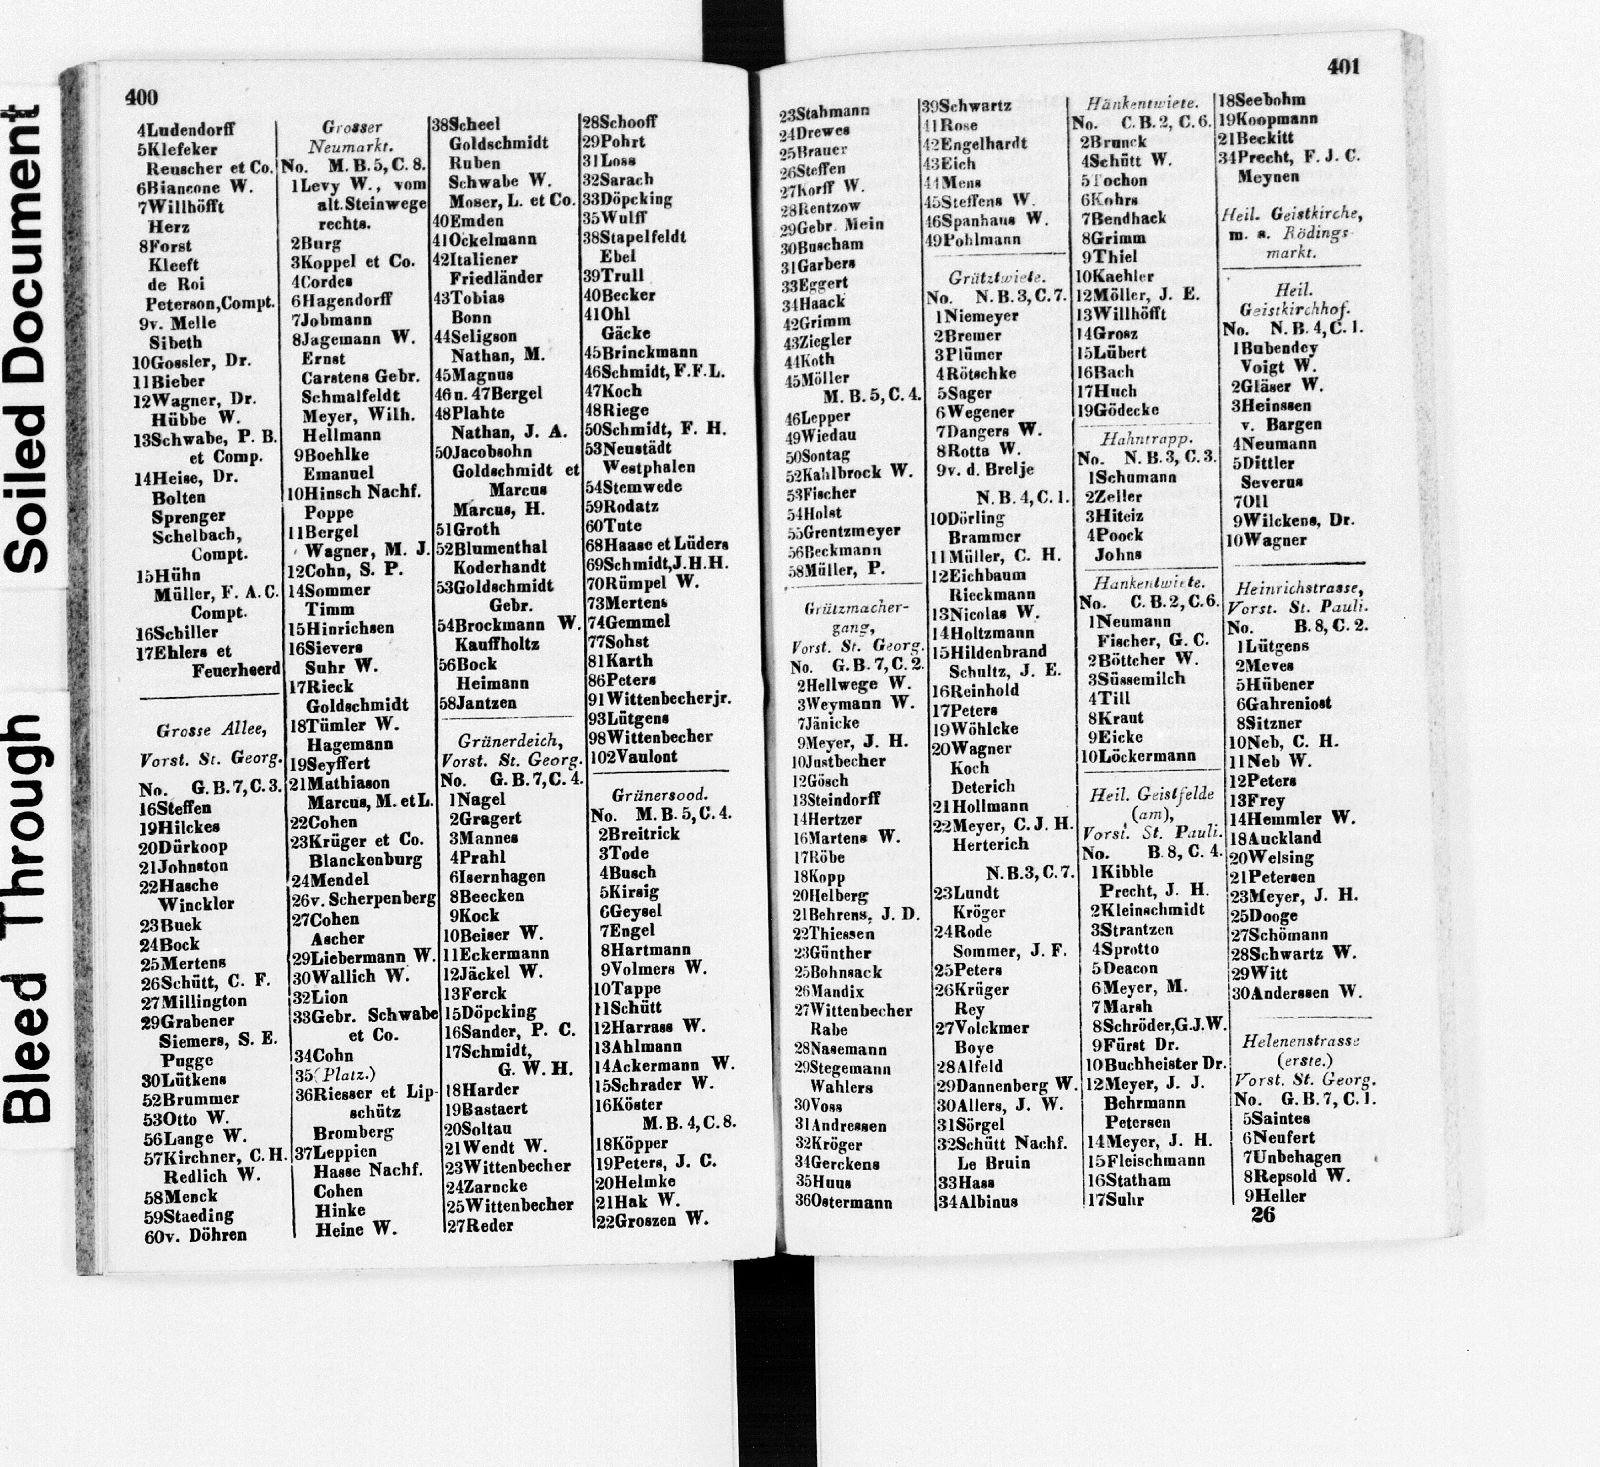 Soiled Document
Bleed Through
400
4Ludendorff
5Klefeker
Reuscher et Co.
6Biancone W.
7Willhöfft
Herz
8Forst
Kleeft
de Roi
Peterson,Compt.
9v. Melle
Sibeth
10Gossler, Dr.
11Bieber
12Wagner, Dr.
Hübbe W.
13Schwabe, P. B.
et Comp.
14Heise, Dr.
Bolten
Sprenger
Schelbach,
Compt.
15Hühn
Müller, F. A. C.
Compt.
16Schiller
17Ehlers et
Feuerheerd
Grosse Allee,
Vorst. St. Georg.
No. G. B. 7, C. 3.
16Steffen
19Hilckes
20Dürkoop
21Johnston
22Hasche
Winckler
23Buek
24Bock
25Mertens
26Schütt, C. F.
27Millington
29Grabener
Siemers, S. E.
Pugge
30Lütkens
52Brummer
53Otto W.
56Lange W.
57Kirchner, C. H.
Redlich W.
58Menck
59Staeding
60v. Döhren
Grosser
Neumarkt.
No. M. B. 5, C. 8.
1Levy W., vom
alt. Steinwege
rechts.
2Burg
3Koppel et Co.
4Cordes
6Hagendorff
7Jobmann
8Jagemann W.
Ernst
Carstens Gebr.
Schmalfeldt
Meyer, Wilh.
Hellmann
9Boehlke
Emanuel
10Hinsch Nachf.
Poppe
11Bergel
Wagner, M. J.
12Cohn, S. P.
14Sommer
Timm
15Hinrichsen
16Sievers
Suhr W.
17Rieck
Goldschmidt
18Tümler W.
Hagemann
19Seyffert
21Mathiason
Marcus, M. et L.
22Cohen
23Krüger et Co.
Blanckenburg
24Mendel
26v. Scherpenberg
27Cohen
Ascher
29Liebermann W.
30Wallich W.
32Lion
33Gebr. Schwabe
et Co.
34Cohn
35(Platz.)
36Riesser et Lip-
schütz
Bromberg
37Leppien
Hasse Nachf.
Cohen
Hinke
Heine W.
38Scheel
Goldschmidt
Ruben
Schwabe W.
Moser, L. et Co.
40Emden
41Ockelmann
42Italiener
Friedländer
43Tobias
Bonn
44Seligson
Nathan, M.
45Magnus
46u. 47Bergel
48Plahte
Nathan, J. A.
50Jacobsohn
Goldschmidt et
Marcus
Marcus, H.
51Groth
52Blumenthal
Koderhandt
53Goldschmidt
Gebr.
54Brockmann W.
Kauffholtz
56Bock
Heimann
58Jantzen
Grünerdeich,
Vorst. St. Georg.
No. G. B. 7, C. 4.
1Nagel
2Gragert
3Mannes
4Prahl
6Isernhagen
8Beecken
9Kock
10Beiser W.
11Eckermann
12Jäckel W.
13Ferck
15Döpcking
16Sander, P. C.
17Schmidt,
G. W. H.
18Harder
19Bastaert
20Soltau
21Wendt W.
23Wittenbecher
24Zarncke
25Wittenbecher
27Reder
28Schooff
29Pohrt
31Loss
32Sarach
33Döpcking
35Wulff
38Stapelfeldt
Ebel
39Trull
40Becker
41Ohl
Gäcke
45Brinckmann
46Schmidt, F.F.L.
47Koch
48Riege
50Schmidt, F. H.
53Neustädt
Westphalen
54Stemwede
59Rodatz
60Tute
68Haase et Lüders
69Schmidt,J.H.H.
70Rümpel W.
73Mertens
74Gemmel
77Sohst
81Karth
86Peters
91Wittenbecherjr.
93Lütgens
98Wittenbecher
102Vaulont
Grünersood.
No. M. B. 5, C. 4.
2Breitrick
3Tode
4Busch
5Kirsig
6Geysel
7Engel
8Hartmann
9Volmers W.
10Tappe
11Schütt
12Harrass W.
13Ahlmann
14Ackermann W.
15Schrader W.
16Köster
M. B. 4, C. 8.
18Köpper
19Peters, J. C.
20Helmke
21Hak W.
22Groszen W.
401
23Stahmann
24Drewes
25Brauer
26Steffen
27Korff W.
28Rentzow
29Gebr. Mein
30Buscham
31Garbers
33Eggert
34Haack
42Grimm
43Ziegler
44Koth
45Möller
M. B. 5, C. 4.
46Lepper
49Wiedau
50Sontag
52Kahlbrock W.
53Fischer
54Holst
55Grentzmeyer
56Beckmann
58Müller, P.
Grützmacher-
gang,
Vorst. St. Georg.
No. G. B. 7, C. 2.
2Hellwege W.
3Weymann W.
7Jänicke
9Meyer, J. H.
10Justbecher
12Gösch
13Steindorff
14Hertzer
16Martens W.
17Röbe
18Kopp
20Helberg
21Behrens, J. D.
22Thiessen
23Günther
25Bohnsack
26Mandix
27Wittenbecher
Rabe
28Nasemann
29Stegemann
Wahlers
30Voss
31Andressen
32Kröger
34Gerckens
35Huus
36Ostermann
39Schwartz
41Rose
42Engelhardt
43Eich
44Mens
45Steffens W.
46Spanhaus W.
49Pohlmann
Grütztwiete.
No. N. B. 3, C. 7.
1Niemeyer
2Bremer
3Plümer
4Rötschke
5Sager
6Wegener
7Dangers W.
8Rotta W.
9v. d. Brelje
N. B. 4, C. 1.
10Dörling
Brammer
11Müller, C. H.
12Eichbaum
Rieckmann
13Nicolas W.
14Holtzmann
15Hildenbrand
Schultz, J. E.
16Reinhold
17Peters
19Wöhlcke
20Wagner
Koch
Deterich
21Hollmann
22Meyer, C. J. H.
Herterich
N. B. 3, C. 7.
23Lundt
Kröger
24Rode
Sommer, J. F.
25Peters
26Krüger
Rey
27Volckmer
Boye
28Alfeld
29Dannenberg W.
30Allers, J. W.
31Sörgel
32Schütt Nachf.
Le Bruin
33Hass
34Albinus
Hänkentwiete.
No. C. B. 2, C. 6.
2Brunck
4Schütt W.
5Tochon
6Kohrs
7Bendhack
8Grimm
9Thiel
10Kaehler
12Möller, J. E.
13Willhöfft
14Grosz
15Lübert
16Bach
17Huch
19Gödecke
Hahntrapp.
No. N. B. 3, C. 3.
1Schumann
2Zeller
3Hiteiz
4Poock
Johns
Hankentwiete.
No. C. B. 2, C. 6.
1Neumann
Fischer, G. C.
2Böttcher W.
3Süssemilch
4Till
8Kraut
9Eicke
10Löckermann
Heil. Geistfelde
(am),
Vorst. St. Pauli.
No. B. 8, C. 4.
1Kibble
Precht, J. H.
2Kleinschmidt
3Strantzen
4Sprotto
5Deacon
6Meyer, M.
7Marsh
8Schröder,G.J.W.
9Fürst Dr.
10Buchheister Dr.
12Meyer, J. J.
Behrmann
Petersen
14Meyer, J. H.
15Fleischmann
16Statham
17Suhr
18Seebohm
19Koopmann
21Beckitt
34Precht, F. J. C.
Meynen
Heil. Geistkirche,
m. s. Rödings-
markt.
Heil.
Geistkirchhof.
No. N. B. 4, C. 1.
1Bubendey
Voigt W.
2Gläser W.
3Heinssen
v. Bargen
4Neumann
5Dittler
Severus
7Oll
9Wilckens, Dr.
10Wagner
Heinrichstrasse,
Vorst. St. Pauli.
No. B. 8, C. 2.
1Lütgens
2Meves
5Hübener
6Gahreniost
8Sitzner
10Neb, C. H.
11Neb W.
12Peters
13Frey
14Hemmler W.
18Auckland
20Welsing
21Petersen
23Meyer, J. H.
25Dooge
27Schömann
28Schwartz W.
29Witt
30Anderssen W.
Helenenstrasse
(erste.)
Vorst. St. Georg.
No. G. B. 7, C. 1.
5Saintes
6Neufert
7Unbehagen
8Repsold W.
9Heller
26